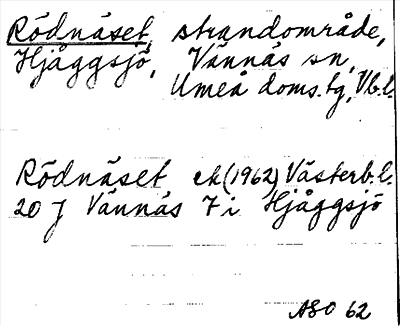 Rödnäset, strandområde,
Hjåggsjö, Vännäs sn,
Umeå doms. tg, Vb.l.
Rödnäset ek (1962) Västerb. l.
20 J Vännäs 7 i Hjåggsjö
ASO 62